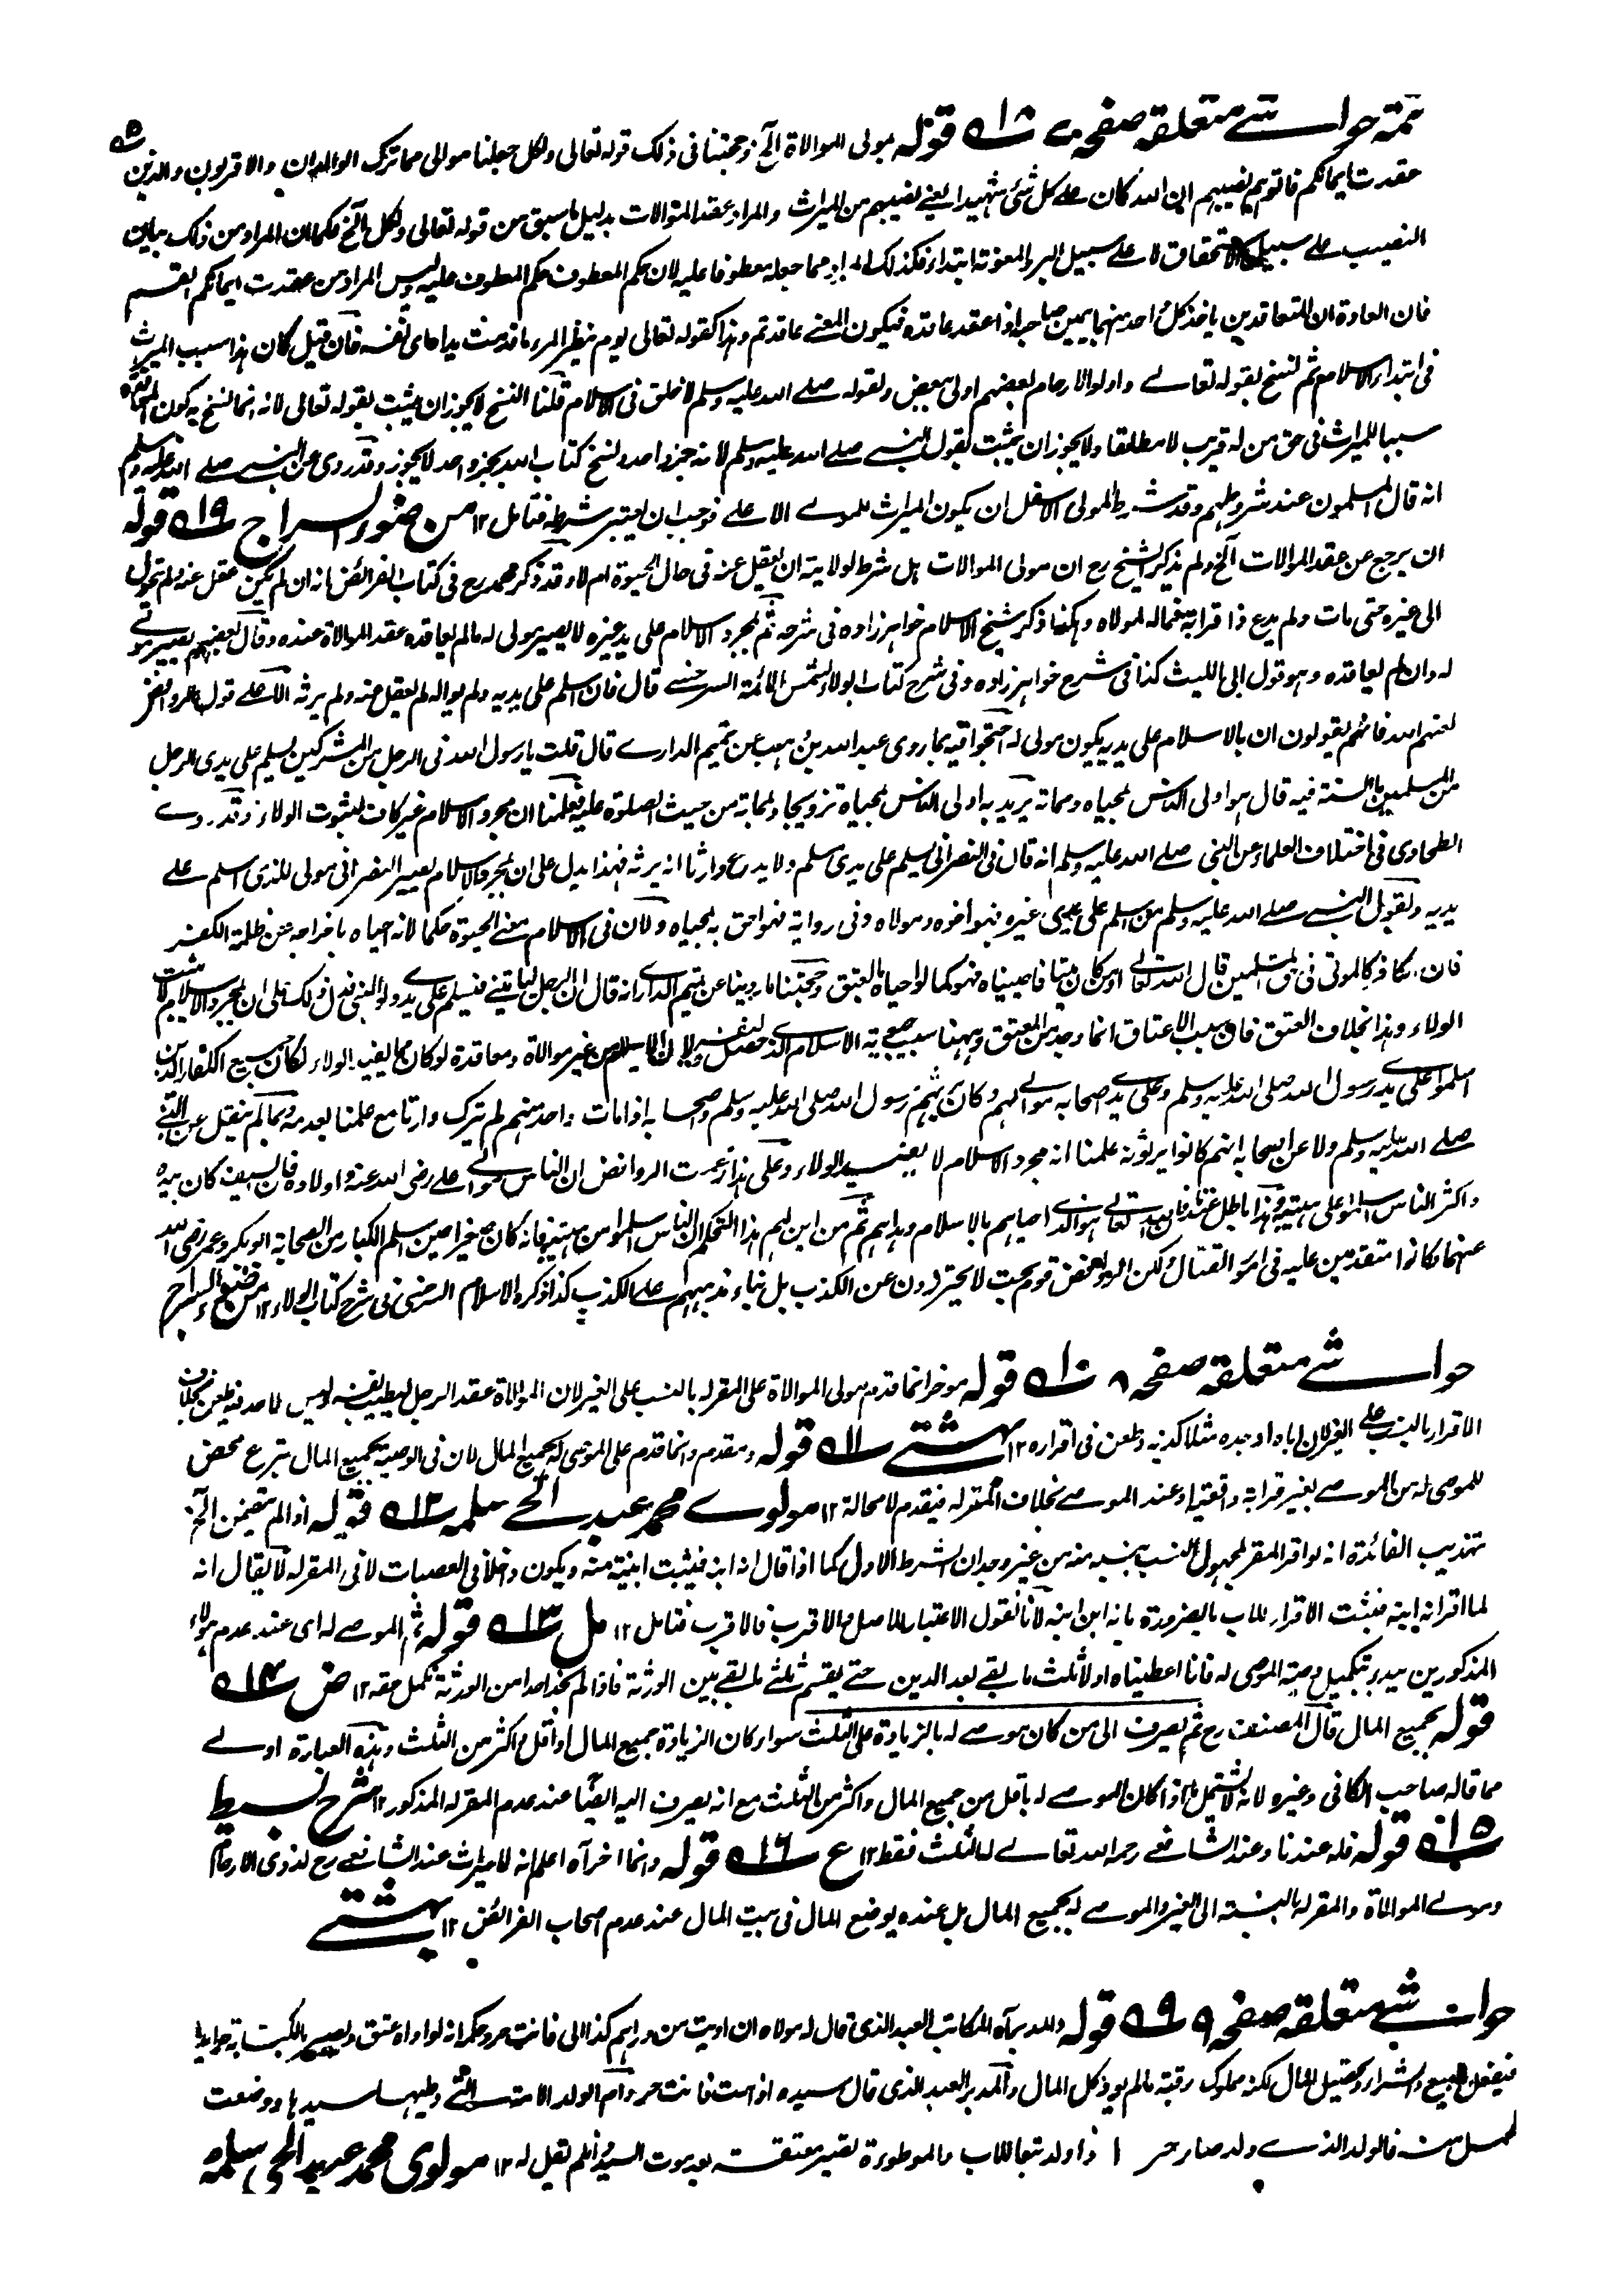 تتمه حواشے متعلقہ صفحہ ٧ ۱۸ قوله مولى الموالاة الخ وحجتنا فى ذلك قوله تعالى ولكل جعلنا موالى مما ترك الوالدان والاقربون والذين
عقدت ايمانكم فاتوهم نصيبهم ان الله كان على كل شئ شهيدا يعنے نصيبهم من الميراث والمراد عقد الموالات بدليل ما سبق من قوله تعالى ولكل الخ فكما ان المراد من ذلك بيان
النصيب على سبيل الاستحقاق لا على سبيل البر والمعونة ابتداء فكذلك المراد مما جعله معطوفا عليه لان حكم المعطوف حكم المعطوف عليه وليس المراد من عقدت ايمانكم القسم
فان العادة ان المتعاقدين ياخذ كل واحد منهما بيمين صاحبه اذا عقد عاقده فيكون المعنے عاقدتم وهذا كقوله تعالى يوم ينظر المرء ما قدمت يداه اى نفسه فان قيل كان هذا سبب الميراث
فى ابتداء الاسلام ثم نسخ بقوله تعالے واولوالارحام بعضهم اولى ببعض ولقوله صلے الله عليه وسلم لا حلف فى الاسلام قلنا النسخ لا يجوز ان يثبت بقوله تعالى لانه انما نسخ به كون
سببا للميراث فى حق من له قريب لا مطلقا ولا يجوز ان يثبت بقول النبے صلے الله عليه وسلم لانه خبر واحد ونسخ كتاب الله بخبر واحد لا يجوز وقد روى عن النبے صلے الله عليه وسلم
انه قال المسلمون عند شروطهم وقد شرط المولى الاسفل ان يكون الميراث للمولے الاعلے فوجب ان يعتبر شرطه فتامل ۱۲ من ضوء السراج ۱۹ قوله
ان يرجع عن عقد الموالات الخ ولم يذكر الشيخ رح ان مولى الموالات هل شرط لولايته ان يعقل عنه فى حال الحيوة ام لا وقد ذكر محمد رح فى كتاب الفرائض انه ان لم يكن عقل عنه ولم يتحول
الى غيره حتى مات ولم يدع ذا قرابة فماله لمولاه وهكذا ذكر شيخ الاسلام خواهر زاده فى شرحه ثم بمجرد الاسلام على يد غيره لا يصير مولى له ما لم يعاقده عقد الموالاة عنده وقال بعضهم يصير مولے
له وان لم يعاقده وهو قول ابى الليث كذا فى شرح خواهر زاده وفى شرح كتاب الولاء لشمس الائمة السرخسے قال فان اسلم على يديه ولم يواله لم يعقل عنه ولم يرثه الا على قول الروافض
لعنهم الله فانهم يقولون ان بالاسلام على يديه يكون مولى له احتجوا فيه بما روى عبد الله بن وهب عن تميم الدارے قال قلت يا رسول الله فى الرجل من المشركين يسلم على يدى الرجل
من المسلمين ما السنة فيه قال هو اولى الناس بمحياه ومماته يريد به اولى الناس بمحياه تزويجا وبمماته من حيث الصلوة عليه فعلمنا ان مجرد الاسلام غير كاف لثبوت الولاء وقد روے
الطحاوى فى اختلاف العلماء عن النبى صلے الله عليه وسلم انه قال فى النصرانى يسلم على يدى مسلم ولا يدع وارثا انه يرثه فهذا يدل على ان بمجرد الاسلام يصير النصرانى مولى للذى اسلم علے
يديه ولقول النبے صلے الله عليه وسلم من اسلم على يدى غيره فهو اخوه ومولاه وفى رواية فهو احق به بمحياه ولان فى الاسلام معنے الحيوة حكما لانه احياه باخراجه عن ظلمة الكفر
فان الكافر كالموتى فى حق المسلمين قال الله تعالے او من كان ميتا فاحييناه فهو كما لو احياه بالعتق وحجتنا ما روينا عن تميم الدارے انه قال ان الرجل لياتينے فيسلم علے يدى ذلك على ان بمجرد الاسلام لا يثبت
الولاء وهذا بخلاف العتق فان سبب الاعتاق انما وجد من المعتق وههنا سبب الاسلام الذے حصل من غير موالاة ومعاقدة لو كان مما يفيد الولاء لكان جميع الكفار الذين
اسلموا على يد رسول الله صلى الله عليه وسلم وعلى يدے اصحابه موالے لهم وكان يرثهم رسول الله صلى الله عليه وسلم واصحابه اذا مات واحد منهم لم يترك وارثا مع علمنا بعدمه ولما لم ينقل عن النبے
صلے الله عليه وسلم ولا عن اصحابه انهم كانوا يرثونه علمنا انه مجرد الاسلام لا يفيد الولاء وعلى هذا زعمت الروافض ان الناس موالے على رضى الله عنه واولاده فان السيف كان بيده
واكثر الناس اسلموا على هيبته وهذا باطل عندنا فان الله تعالے هو الذے احياهم بالاسلام وهداهم ثم من اين لهم هذا التحكم ان الناس اسلموا من هيبته فانه كان صغيرا حين اسلم الكبار من الصحابة ابو بكر وعمر رضى الله
عنهما وكانوا متقدمين عليه فى امر القتال ولكن الروافض قوم بهت لا يحترزون عن الكذب بل بناء مذهبهم على الكذب كذا ذكره الاسلام السرخسى فى شرح كتاب الولاء ۱۲ من ضوء السراج
حواشے متعلقہ صفحہ ۸ ۱۰ قوله موخر انما قدم مولى الموالاة على المقر له بالنسب على الغير لان الموالاة عقد الرجل بطيب نفسه وليس لاحد فيه طعن بخلاف
الاقرار بالنسب على الغير لان اباه او جده مثلا كذبه وطعن فى اقراره ۱۲ بهشتے ۱۱ قوله ومقدم وانما قدم على الموصى له بجميع المال لان فى الوصية بجميع المال تبرع محض
للموصى له من الموصے بغير قرابة واقعية او عند الموصے بخلاف المقر له فيتقدم لا محالة ۱۲ مولوے محمد عبد الحے سلمه ۱۲ قوله اذا لم يتضمن الخ
تهذيب الفائدة انه لو اقر المقر لمجهول النسب بنسبه منه من غير وجدان الشرط الاول كما اذا قال انه ابنه فيثبت ابنيته منه ويكون داخلا فى العصبات لا فى المقر له لا يقال انه
لما اقر انه ابنه فيثبت الاقرار للاب بالضرورة بانه ابن ابنه لانا نقول الاعتبار للاصل والاقرب فالاقرب فتامل ۱۲ مل ۱۳ قوله ثم الموصے له اى عند عدم هؤلاء
المذكورين يبدء بتكميل وصية الموصى له فانا اعطيناه اولا ثلث ما بقے بعد الدين حتے يقسم ثلثے ما بقے بين الورثة فاذا لم نجد احدا من الورثة نكمل حقه ۱۲ ض ۱۴
قوله بجميع المال قال المصنف رح ثم يصرف الى من كان موصے له بالزيادة على الثلث سواء كان الزيادة جميع المال او اقل واكثر من الثلث وهذه العبارة اولے
مما قاله صاحب الكافى وغيره لانه لا يشتمل اذا كان الموصے له باقل من جميع المال واكثر من الثلث مع انه يصرف اليه ايضا عند عدم المقر له المذكور ۱۲ شرح بسيط
۱۵ قوله فله عندنا وعند الشافعے رحمه الله تعالے له الثلث فقط ۱۲ ع ۱۶ قوله وانما اخراه اعلم انه لا ميراث عند الشافعے رح لذوى الارحام
ومولے الموالاة والمقر له بالنسبة الى الغير والموصے له بجميع المال بل عنده يوضع المال فى بيت المال عند عدم اصحاب الفرائض ۱۲ بهشتے
حواشے متعلقہ صفحہ ۹ ۹ قوله والمدبر آه المكاتب العبد الذى قال له مولاه ان اديت من دراهم كذا الى فانت حر وحكمه انه لو اداه عتق ويصير بالكتابة حرا يدا
فيفعل البيع والشراء وتحصيل المال لكنه مملوك رقبته ما لم يود كل المال والمدبر العبد الذى قال سيده اذا مت فانت حر وام الولد الامة التے وطيها سيدها ووضعت
لحمل منه فالولد الذے ولد صار حرا اذ الولد تبعا للاب والموطوءة تصير معتقة بعد موت السيد ۱۲ مولوى محمد عبد الحى سلمه